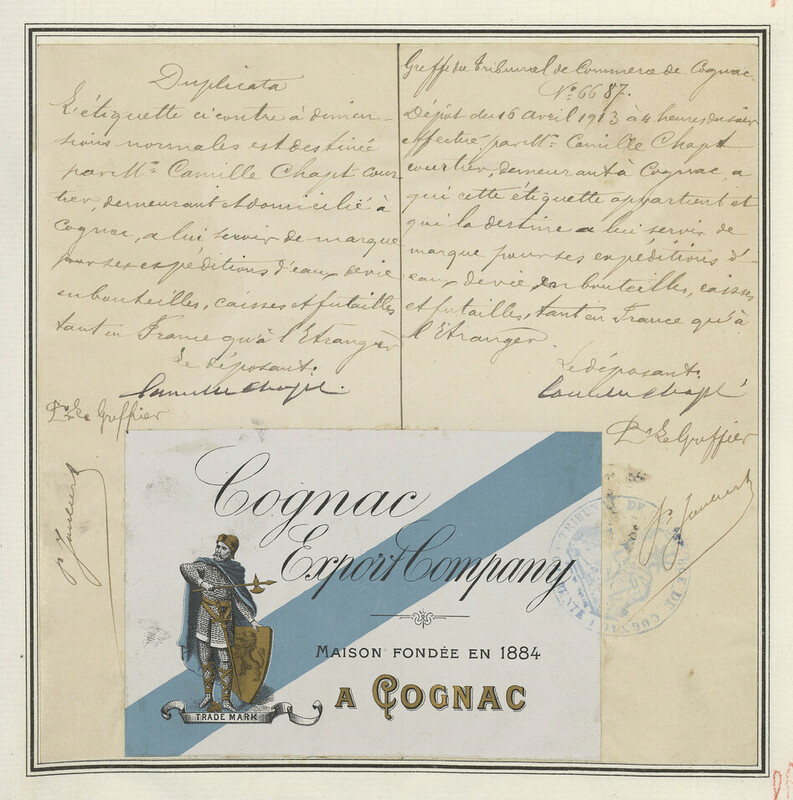 Duplicata
L'étiquette ci contre à dimen-
sions normales est destinée
par Mr. Camille Chapt cour-
tier, demeurant et domicilié à
Cognac, a lui servir de marque
pour ses expéditions d'eau de vie
en bouteilles, caisses et futailles
tant en France qu'à l'Etranger
Le déposant.
Camille Chapt.
Pr. Le Greffier
Greffe du Tribunal de Commerce de Cognac.
No. 6687.
Dépôt du 16 avril 1913 à 4 heures du soir
effectué par Mr. Camille Chapt
courtier, demeurant à Cognac, a
qui cette étiquette appartient et
qui la destine a lui servir de
marque pour ses expéditions d'-
eau de vie en bouteilles, caisses
et futailles, tant en France qu'à
l'Etranger.
Le déposant.
Camille Chapt
Pr. Le Greffier
Cognac
Export Company
MAISON FONDÉE EN 1884
A COGNAC
TRADE MARK
TRIBUNAL DE COMMERCE DE COGNAC